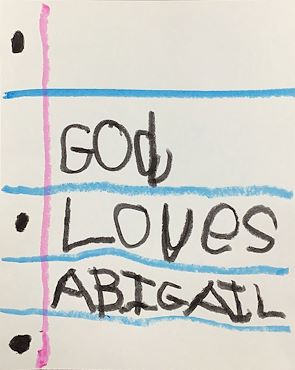 God
Loves
ABIGAIL